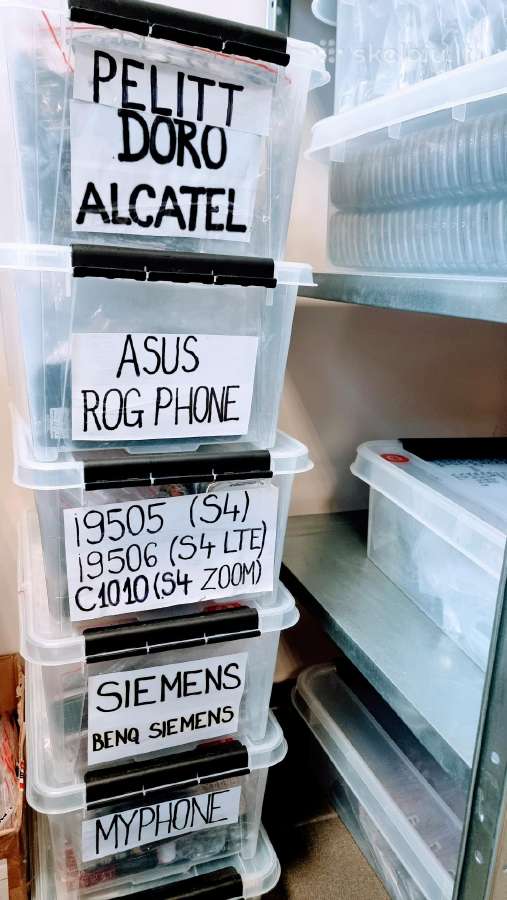 skelbiu.lt
PELITT
DORO
ALCATEL
ASUS
ROG PHONE
i9505 (S4)
i9506 (S4 LTE)
C1010 (S4 ZOOM)
SIEMENS
BENQ SIEMENS
MYPHONE